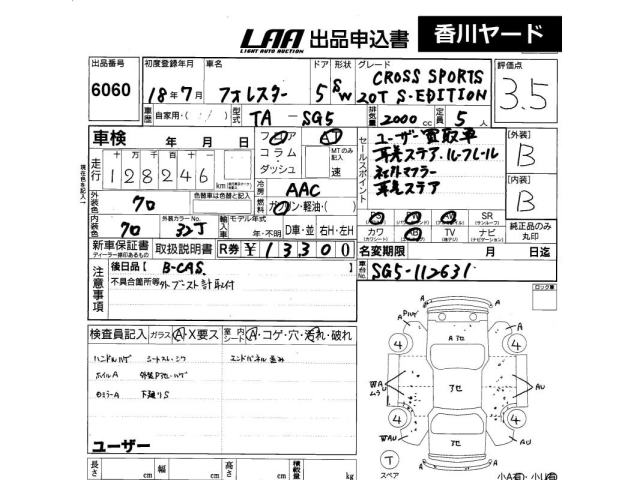 LAA 出品申込書 香川ヤード
LIGHT AUTO AUCTION
出品番号 初度登録年月 車名 ドア 形状 グレード 評価点
6060 18年7月 フォレスター 5 SW CROSS SPORTS 20T S-EDITION 3.5
車歴 自家用・( ) 型式 TA-SG5 排気量 2000 cc 定員 5 人
車検 年 月 日 フロア AT セールスポイント ユーザー買取車 [外装]
走行 十万 万 千 百 十 km コラム MTのみ記入 B
128246 ダッシュ 速 社外マフラー
現在色を記入 色替車は色替と記入 冷房 AAC [内装]
外装色 70 燃料 ガソリン・軽油・( ) B
内装色 70 外装カラーNo. 32J 輸入車 モデル年式 年・不明 D車・並 右H・左H カワ AB TV ナビ SR 純正品のみ丸印
新車保証書 取扱説明書 R券 ¥13300 名変期限 月 日迄
ディーラー捺印あるもの
注意事項 後日品【 B-CAS. 】 車台No. SG5-112631
不具合箇所等 外ブースト計取付 ロック車
検査員記入 ガラス A・X要ス 室内シート A・コゲ・穴・汚れ・破れ
ハンドルハゲ シートスレ・シワ エンドパネル歪み
ホイルA
Dミラーア 下廻りS
ユーザー
長さ cm 幅 cm 高さ cm 積載量 kg
A Pハゲ A A
4 Aア也 4
WAU ムラ A ア也 A AU
4 4
WAU ア也 AU
T スペア A
小A有・小U有